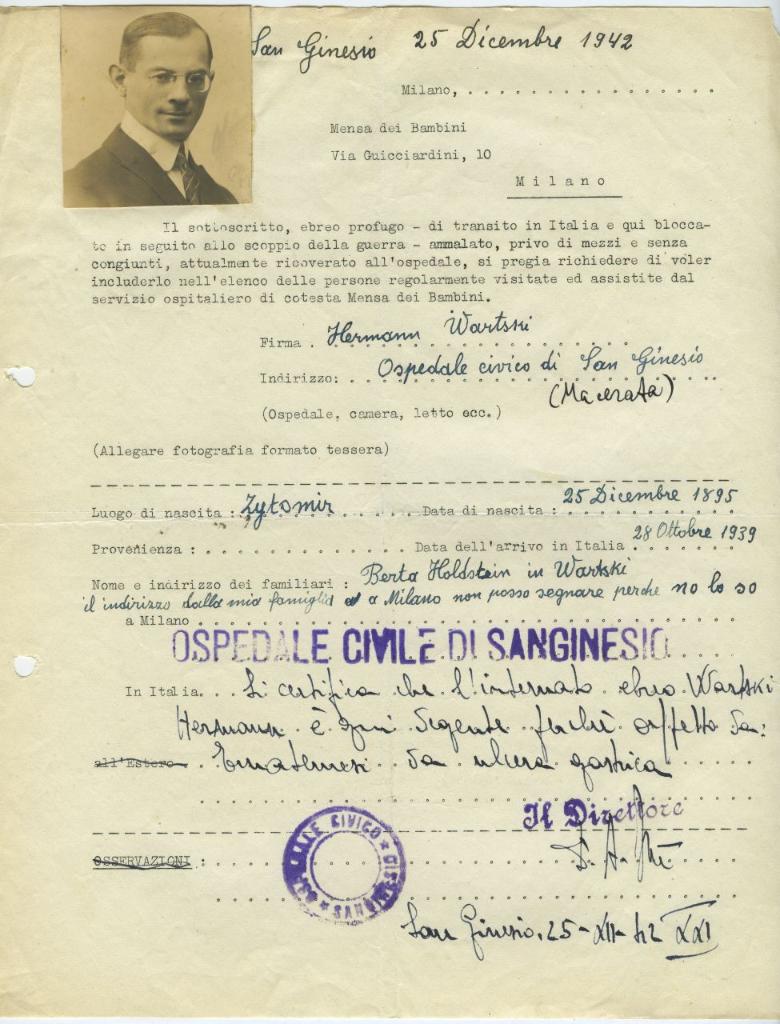 San Ginesio 25 Dicembre 1942
Milano, . . . . . . . . . . . . . . . .
Mensa dei Bambini
Via Guicciardini, 10
M i l a n o
Il sottoscritto, ebreo profugo - di transito in Italia e qui blocca-
to in seguito allo scoppio della guerra - ammalato, privo di mezzi e senza
congiunti, attualmente ricoverato all'ospedale, si pregia richiedere di voler
includerlo nell'elenco delle persone regolarmente visitate ed assistite dal
servizio ospitaliero di cotesta Mensa dei Bambini.
Firma . Hermann Wartski
Indirizzo: . Ospedale civico di San Ginesio
(Macerata)
(Ospedale, camera, letto ecc.)
(Allegare fotografia formato tessera)
Luogo di nascita : Zytomir . . . . . . Data di nascita : 25 Dicembre 1895
Provenienza : . . . . . . . . . . . . Data dell'arrivo in Italia . 28 Ottobre 1939
Nome e indirizzo dei familiari : Berta Holdstein in Wartski
il indirizzo dalla mia famiglia a Milano non posso segnare perche no lo so
a Milano
OSPEDALE CIVILE DI SANGINESIO
In Italia. . . Si certifica che l'internato ebreo Wartski
Hermann è qui degente perchè affetto da
all'Estero da ulcera gastrica
Il Direttore
OSSERVAZIONI :
OSPEDALE CIVICO
San Ginesio, 25-XII-42 XXI